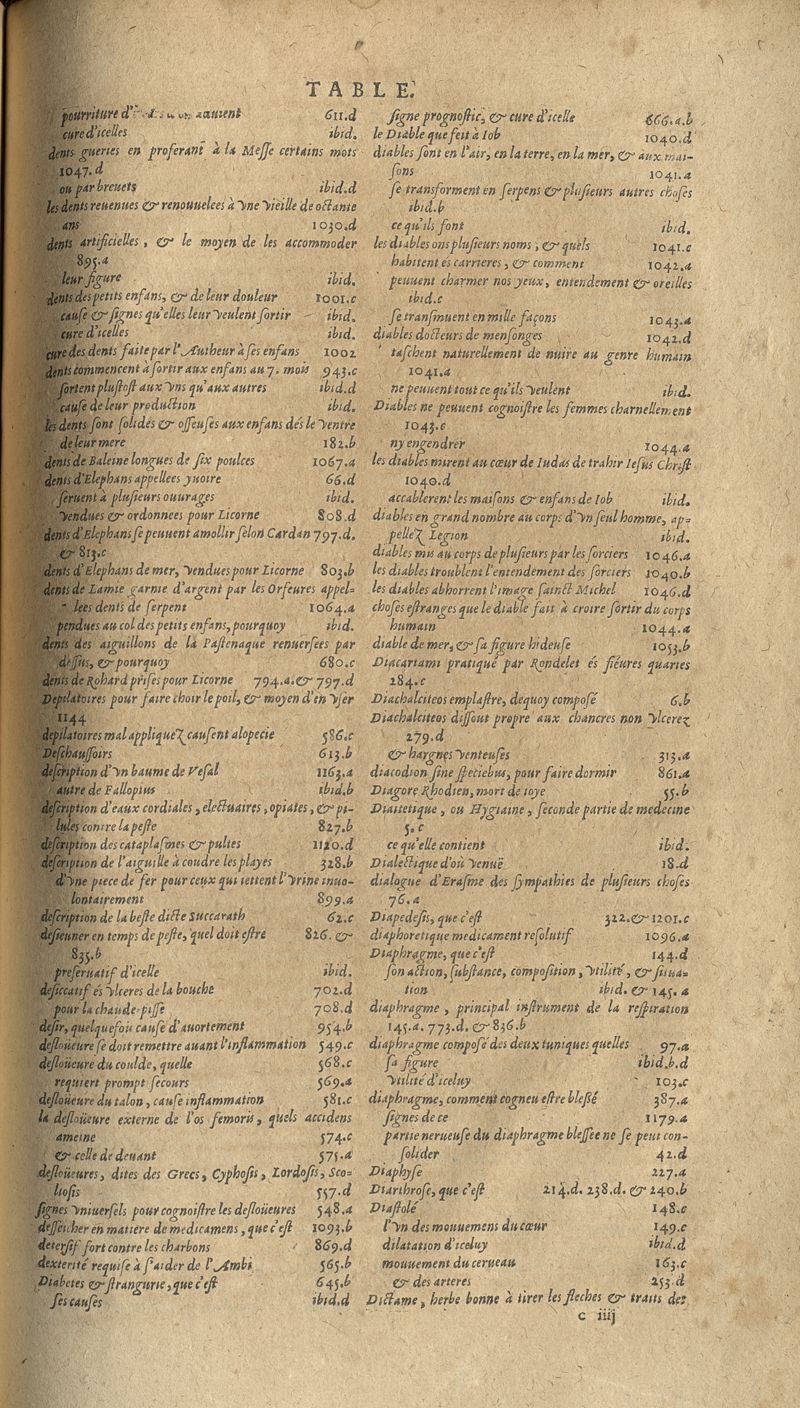 TABLE.
pourriture d'
cure d'icelles ibid.
dents gueries en proferant à la Messe certains mots
1047.d
ou par breuets ibid.d
les dents reuenues & renouuelees à vne vieille de octante
ans 1030.d
dents artificielles, & le moyen de les accommoder
895.a
leur figure ibid.
dents des petits enfans, & de leur douleur 1001.c
cause & signes qu'elles leur veulent sortir ibid.
cure d'icelles ibid.
cure des dents faite par l'Autheur à ses enfans 1002
dents commencent à sortir aux enfans au 7. mois 943.c
sortent plustost aux vns qu'aux autres ibid.d
cause de leur production ibid.
les dents sont solides & osseuses aux enfans dés le ventre
de leur mere 182.b
dents de Baleine longues de six poulces 1067.a
dents d'Elephans appellees yuoire 66.d
seruent à plusieurs ouurages ibid.
vendues & ordonnees pour Licorne 808.d
dents d'Elephans se peuuent amollir selon Cardan 797.d.
& 813.c
dents d'Elephans de mer, vendues pour Licorne 803.b
dents de Lamie garnie d'argent par les Orfeures appel-
lees dents de serpent 1064.a
pendues au col des petits enfans, pourquoy ibid.
dents des aiguillons de la Pastenaque renuersees par
dessus, & pourquoy 680.c
dents de Rohard prises pour Licorne 794.a. & 797.d
Depilatoires pour faire choir le poil, & moyen d'en vser
1144
depilatoires mal appliquez causent alopecie 586.c
Deschaussoirs 613.b
description d'vn baume de Vesal 1163.a
autre de Fallopius ibid.b
description d'eaux cordiales, electuaires, opiates, & pi-
lules contre la peste 827.b
description des cataplasmes & pulties 1120.d
description de l'aiguille à coudre les playes 328.b
d'vne piece de fer pour ceux qui iettent l'vrine inuo-
lontairement 899.a
description de la beste dicte Succarath 62.c
desieuner en temps de peste, quel doit estre 826. &
835.b
preseruatif d'icelle ibid.
desiccatif és vlceres de la bouche 702.d
pour la chaude-pisse 708.d
desir, quelquefois cause d'auortement 954.b
desloüeure se doit remettre auant l'inflammation 549.c
desloüeure du coulde, quelle 568.c
requiert prompt secours 569.a
desloüeure du talon, cause inflammation 581.c
la desloüeure externe de l'os femoris, quels accidens
ameine 574.c
& celle de deuant 575.a
desloüeures, dites des Grecs, Cyphosis, Lordosis, Sco-
liosis 557.d
signes vniuersels pour cognoistre les desloüeures 548.a
desseicher en matiere de medicamens, que c'est 1093.b
detersif fort contre les charbons 869.d
dexterité requise à s'aider de l'Ambi 565.b
Diabetes & strangurie, que c'est 645.b
ses causes ibid.d
signe prognostic, & cure d'icelle 666.a.b
le Diable que feit à Iob 1040.d
diables sont en l'air, en la terre, en la mer, & aux mai-
sons 1041.a
se transforment en serpens & plusieurs autres choses
ibid.b
ce qu'ils font ibid.
les diables ons plusieurs noms, & quels 1041.c
habitent és carrieres, & comment 1042.a
peuuent charmer nos yeux, entendement & oreilles
ibid.c
se transmuent en mille façons 1043.a
diables docteurs de mensonges 1042.d
taschent naturellement de nuire au genre humain
1041.a
ne peuuent tout ce qu'ils veulent ibid.
Diables ne peuuent cognoistre les femmes charnellement
1043.c
ny engendrer 1044.a
les diables mirent au cœur de Iudas de trahir Iesus Christ
1040.d
accablerent les maisons & enfans de Iob ibid.
diables en grand nombre au corps d'vn seul homme, ap-
pellez Legion ibid.
diables mis au corps de plusieurs par les sorciers 1046.a
les diables troublent l'entendement des sorciers 1040.b
les diables abhorrent l'image sainct Michel 1046.d
choses estranges que le diable fait à croire sortir du corps
humain 1044.a
diable de mer, & sa figure hideuse 1053.b
Diacartami pratiqué par Rondelet és fiéures quartes
284.c
Diachalciteos emplastre, dequoy composé 6.b
Diachalciteos dissout propre aux chancres non vlcerez
279.d
& hargnes venteuses 313.a
diacodion sine speciebus, pour faire dormir 861.a
Diagore Rhodien, mort de ioye 55.b
Diaitetique, ou Hygiaine, seconde partie de medecine
5.c
ce qu'elle contient ibid.
Dialectique d'où venuë 18.d
dialogue d'Erasme des sympathies de plusieurs choses
76.a
Diapedesis, que c'est 322. & 1201.c
diaphoretique medicament resolutif 1096.a
Diaphragme, que c'est 144.d
son action, substance, composition, vtilité, & situa-
tion ibid. & 145.a
diaphragme, principal instrument de la respiration
145.a. 773.d. & 836.b
diaphragme composé des deux tuniques quelles 97.a
sa figure ibid.b.d
vtilité d'iceluy 103.c
diaphragme, comment cogneu estre blessé 387.a
signes de ce 1179.a
partie nerueuse du diaphragme blessee ne se peut con-
solider 42.d
Diaphyse 227.a
Diarthrose, que c'est 214.d. 238.d. & 240.b
Diastolé 148.c
l'vn des mouuemens du cœur 149.c
dilatation d'iceluy ibid.d
mouuement du cerueau 163.c
& des arteres 253.d
Dictame, herbe bonne à tirer les fleches & traits des
c iiij